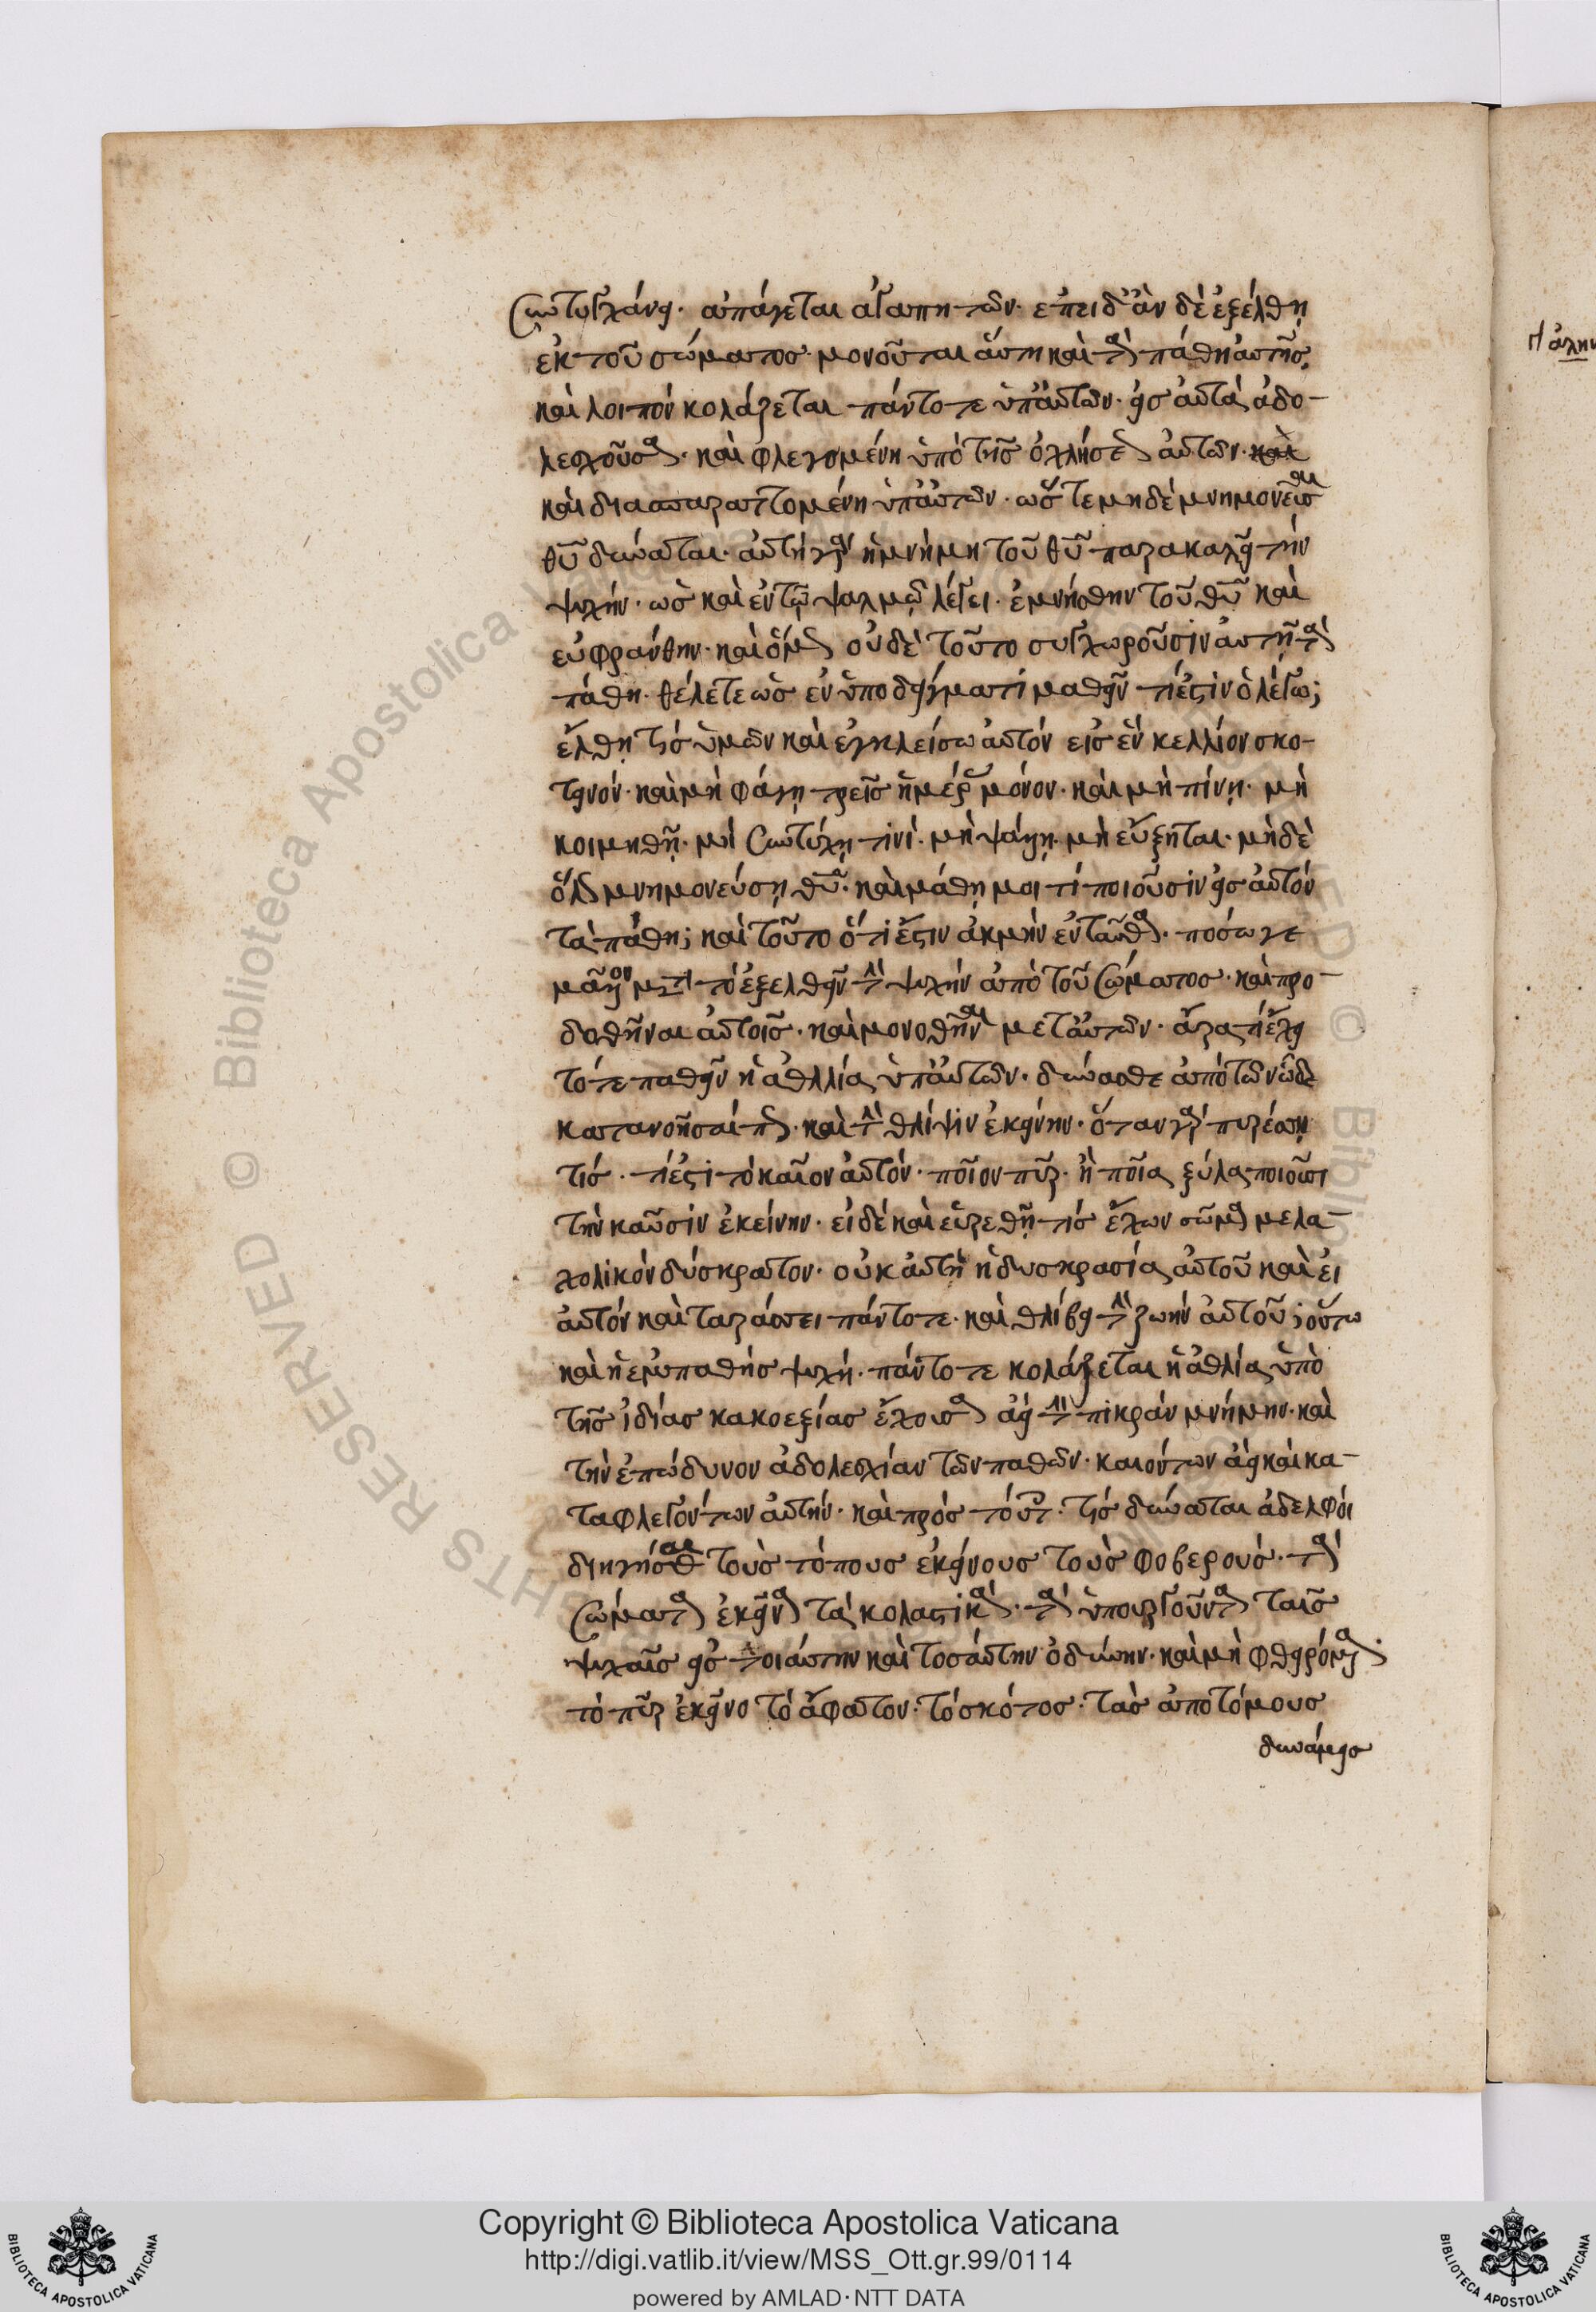 συντυγχάνει· ἀπάγεται ἀγαπητῶν· ἐπειδ' ἂν δὲ ἐξέλθῃ
ἐκ τοῦ σώματος· μονοῦται αὕτη καὶ τὰ πάθη αὐτῆς
καὶ λοιπὸν κολάζεται πάντοτε ὑπ' αὐτῶν· εἰς αὐτὰ ἀδο-
λεσχοῦσα· καὶ φλεγομένη ὑπὸ τῆς ὀχλήσεως αὐτῶν· καὶ
καὶ διασπαραττομένη ὑπ' αὐτῶν· ὥστε μηδὲ μνημονεῦσαι
θῦ δύναται· αὐτὴ γὰρ ἡ μνήμη τοῦ θῦ παρακαλεῖ τὴν
ψυχήν· ὡς καὶ ἐν τῷ ψαλμῷ λέγει· ἐμνήσθην τοῦ θῦ καὶ
εὐφράνθην· καὶ ὅμως οὐδὲ τοῦτο συγχωροῦσιν αὐτῇ τὰ
πάθη· θέλετε ὡς ἐν ὑποδείγματι μαθεῖν τί ἐστιν ὃ λέγω;
ἔλθῃ τὶς ὑμῶν καὶ ἐγκλείσω αὐτὸν εἰς ἓν κελλίον σκο-
τεινόν· καὶ μὴ φάγῃ τρεῖς ἡμέρας μόνον· καὶ μὴ πίνῃ· μὴ
κοιμηθῇ· μὴ συντύχῃ τινί· μὴ ψάλῃ· μὴ εὔξηται· μὴδὲ
ὅλως μνημονεύσῃ θῦ· καὶ μάθῃ μοι τί ποιοῦσιν εἰς αὐτὸν
τὰ πάθη; καὶ τοῦτο ὅτι ἔστιν ἀκμὴν ἐνταῦθα· πόσω γε
μᾶλλον μετὰ τὸ ἐξελθεῖν τὴν ψυχὴν ἀπὸ τοῦ σώματος· καὶ προ-
δοθῆναι αὐτοῖς· καὶ μονοθῆναι μετ' αὐτῶν· ἄρα τί ἔχει
τότε παθεῖν ἡ ἀθλλία ὑπ' αὐτῶν· δύνασθε ἀπὸ τῶν ὧδε
κατανοῆσαί πως· καὶ τὴν θλίψιν ἐκείνην· ὅταν γὰρ πυρέσσῃ
τίς· τί ἐστι τὸ καῖον αὐτόν· ποῖον πῦρ· ἢ ποῖα ξύλα ποιοῦσι
τὴν καῦσιν ἐκείνην· εἰ δὲ καὶ εὑρεθῇ τίς ἔχων σῶμα μελα-
χολικὸν δύσκρατον· οὐκ αὐτὴ ἡ δυσκρασία αὐτοῦ καὶ εἰ
αὐτὸν καὶ ταράσσει πάντοτε· καὶ θλίβει τὴν ζωὴν αὐτοῦ; οὕτω
καὶ ἡ ἐμπαθὴς ψυχή· πάντοτε κολάζεται ἡ ἀθλία ὑπὸ
τῆς ἰδίας κακοεξίας ἔχουσα ἀεὶ τὴν πικρὰν μνήμην· καὶ
τὴν ἐπώδυνον ἀδολεσχίαν τῶν παθῶν· καιόντων ἀεὶ καὶ κα-
ταφλεγόντων αὐτήν· καὶ πρὸς τούτοις· τίς δύναται ἀδελφοὶ
διηγήσασθαι τοὺς τόπους ἐκείνους τοὺς φοβερούς· τὰ
σώματα ἐκεῖνα τὰ κολαστικὰ· τὰ ὑπουργοῦντα ταῖς
ψυχαῖς εἰς τοιαύτην καὶ τοσαύτην ὀδύνην· καὶ μὴ φθειρόμενα·
τὸ πῦρ ἐκεῖνο τὸ ἄφατον· τὸ σκότος· τὰς ἀποτόμους
δυνάμεις